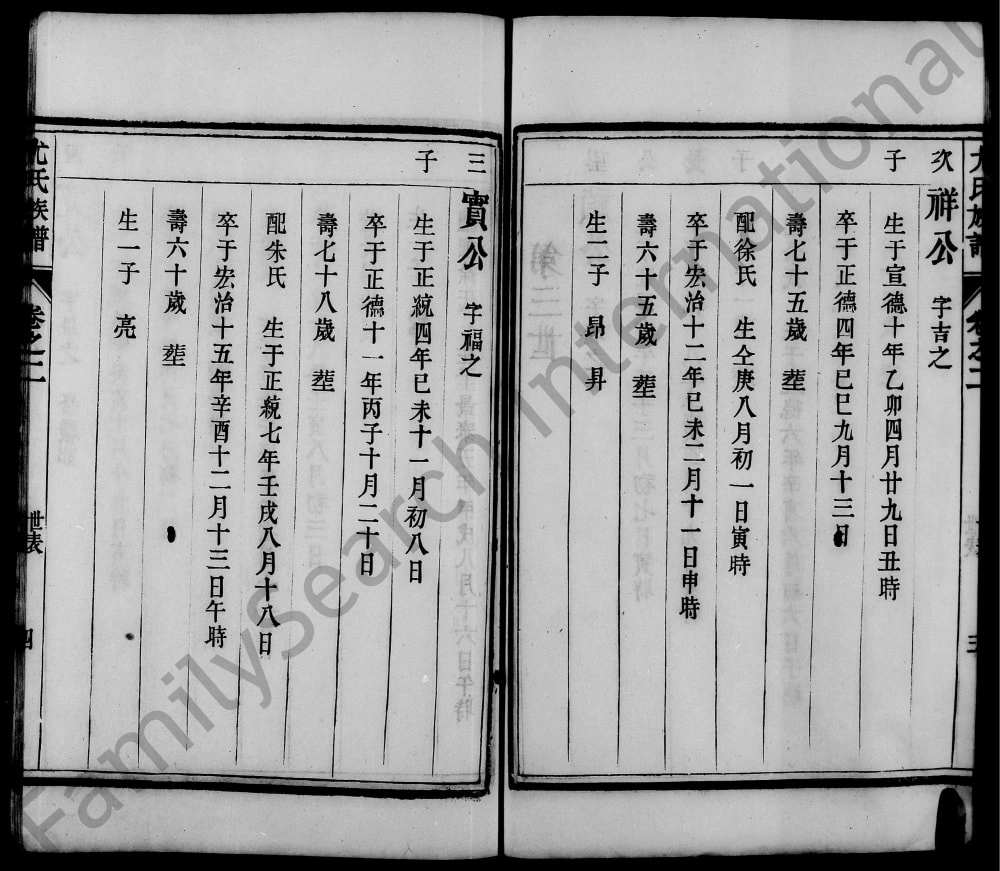 尤氏族譜 卷之二
次子 祥公 字吉之
生于宣德十年乙卯四月廿九日丑時
卒于正德四年巳巳九月十三日
壽七十五歲 塟
配徐氏 生仝庚八月初一日寅時
卒于宏治十二年巳未二月十一日申時
壽六十五歲 塟
生二子 昂 昇
三子 實公 字福之
生于正統四年巳未十一月初八日
卒于正德十一年丙子十月二十日
壽七十八歲 塟
配朱氏 生于正統七年壬戌八月十八日
卒于宏治十五年辛酉十二月十三日午時
壽六十歲 塟
生一子 亮
尤氏族譜 卷之二 世表 四
FamilySearch International